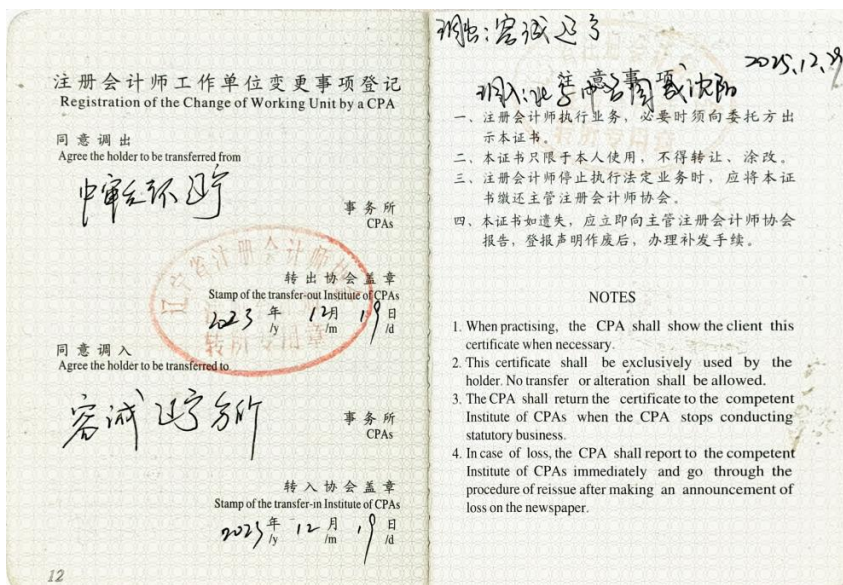 注册会计师工作单位变更事项登记
Registration of the Change of Working Unit by a CPA
同意调出
Agree the holder to be transferred from
中审众环 辽宁
事务所
CPAs
辽宁省注册会计师协会
转出协会盖章
Stamp of the transfer-out Institute of CPAs
2023 年 12 月 19 日
/y /m /d
转所专用章
同意调入
Agree the holder to be transferred to
容诚 辽宁分所
事务所
CPAs
转入协会盖章
Stamp of the transfer-in Institute of CPAs
2023 年 12 月 19 日
/y /m /d
12
调出:容诚辽宁
2025.12.29
调入:北京中名国成沈阳
注意事项
一、注册会计师执行业务,必要时须向委托方出
示本证书。
二、本证书只限于本人使用,不得转让、涂改。
三、注册会计师停止执行法定业务时,应将本证
书缴还主管注册会计师协会。
四、本证书如遗失,应立即向主管注册会计师协会
报告,登报声明作废后,办理补发手续。
转所专用章
NOTES
1. When practising, the CPA shall show the client this
certificate when necessary.
2. This certificate shall be exclusively used by the
holder. No transfer or alteration shall be allowed.
3. The CPA shall return the certificate to the competent
Institute of CPAs when the CPA stops conducting
statutory business.
4. In case of loss, the CPA shall report to the competent
Institute of CPAs immediately and go through the
procedure of reissue after making an announcement of
loss on the newspaper.